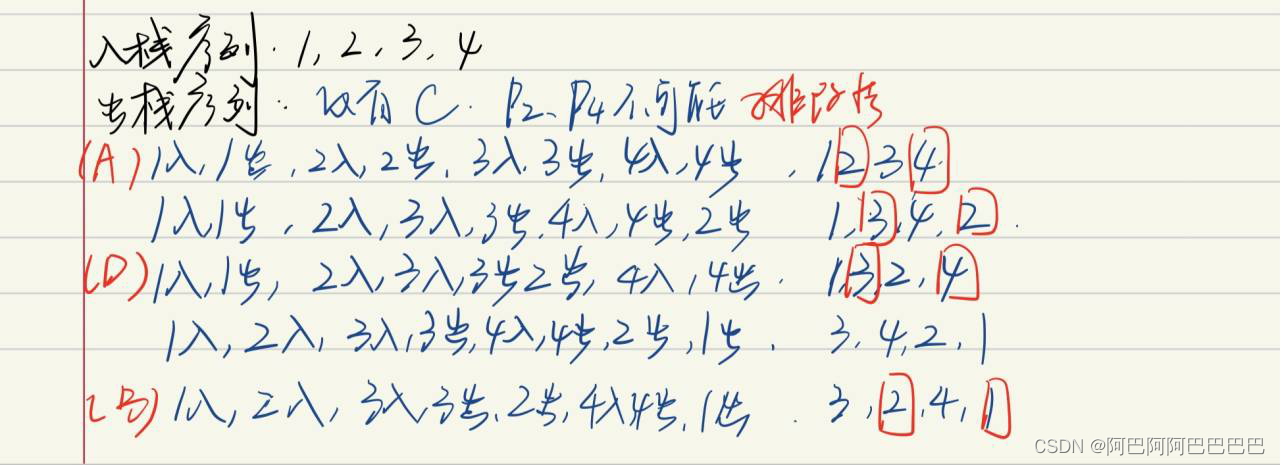 入栈序列: 1, 2, 3, 4
出栈序列: 只有 C. P2、P4不可能 排除法
(A) 1入, 1出, 2入, 2出, 3入, 3出, 4入, 4出, 1 2 3 4
1入, 1出, 2入, 3入, 3出, 4入, 4出, 2出 1, 3, 4, 2.
(D) 1入, 1出, 2入, 3入, 3出 2出, 4入, 4出. 1, 3, 2, 4
1入, 2入, 3入, 3出, 4入, 4出, 2出, 1出. 3, 4, 2, 1
(B) 1入, 2入, 3入, 3出, 2出, 4入 4出, 1出. 3, 2, 4, 1
CSDN @阿巴阿阿巴巴巴巴